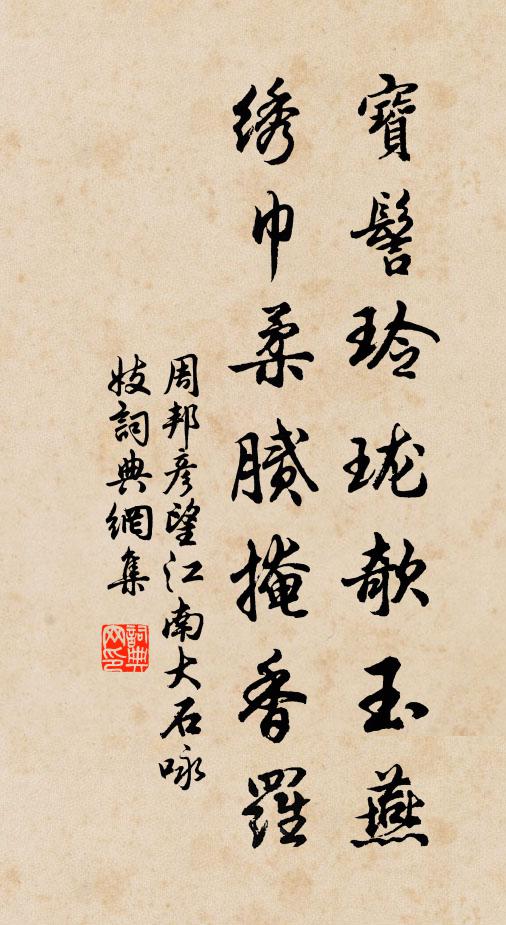 寶髻玲瓏欹玉燕
绣巾柔膩掩香羅
周邦彥望江南大石咏
妓詞典網集
詞典
网印